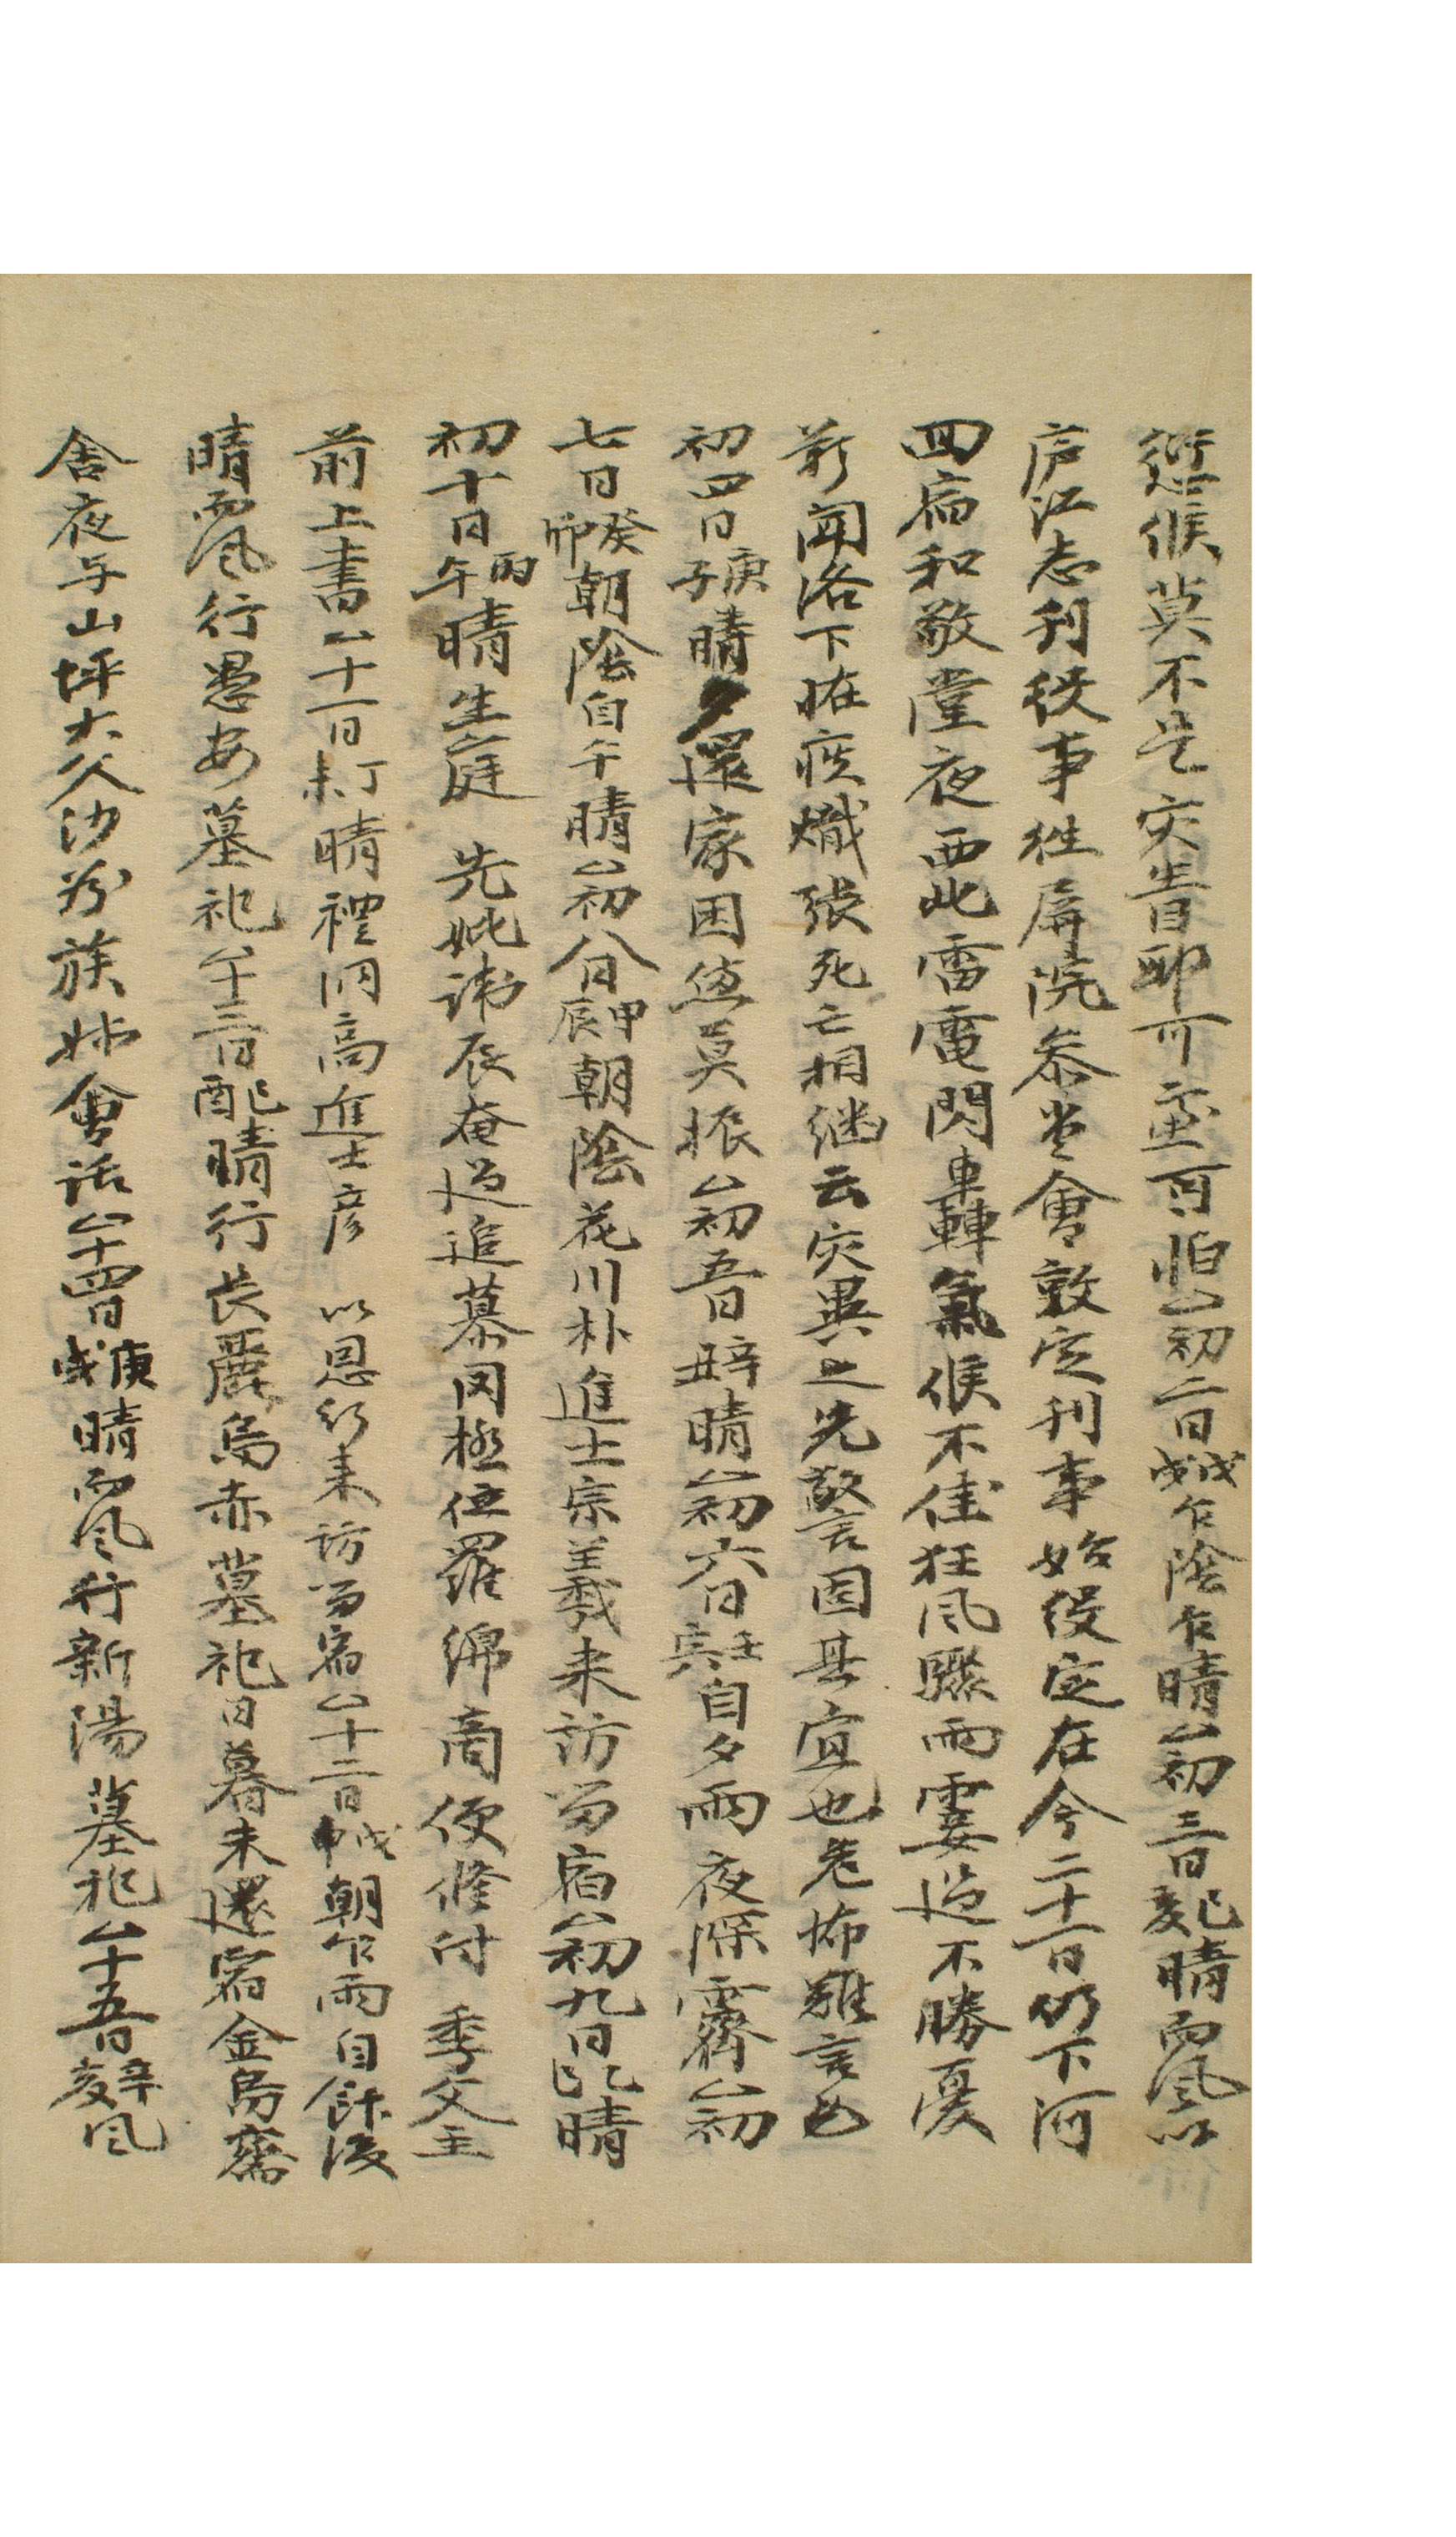 愆候莫不是灾眚耶可𢥠可怕 初二日戊戌乍陰乍晴 初三日己亥晴而風以
庐江志刊役事往屛院叅堂會敦定刊事始役定在今二十一日仍下河
回宿和敬堂夜西北雷電閃轟氣候不佳狂風驟雨霎過不勝憂
菀聞洛下怪疾熾張死亡相継云灾異之先警言固其宜也危怖難言也
初四日庚子晴夕還家困憊莫振 初五日辛丑晴 初六日壬寅自夕雨夜深霽 初
七日癸卯朝陰自午晴 初八日甲辰朝陰花川朴進士宗羲来訪留宿 初九日乙巳晴
初十日丙午晴生庭 先妣諱辰奄過追慕罔極伍羅綿商便修付 季父主
前上書 十一日丁未晴禮洞高進士彦 以恩行来訪留宿 十二日戊申朝乍雨自餘後
晴而風行愚安墓祀 十三日己酉晴行長麗烏赤墓祀日暮未還宿金烏齋
舍夜与山坪大父沙汾族姊會話 十四日庚戌晴而風行新陽墓祀 十五日辛亥風